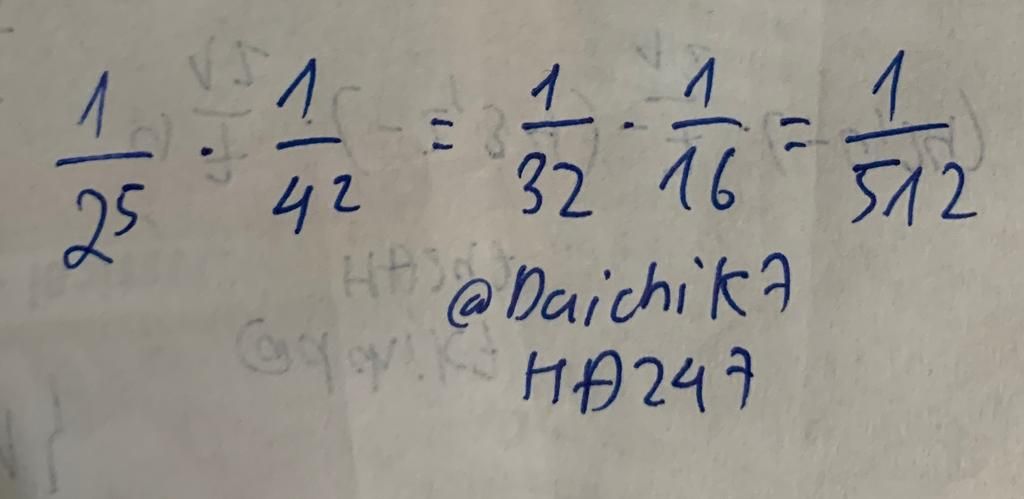 1/2⁵ · 1/4² = 1/32 · 1/16 = 1/512
@Daichik7
HA247